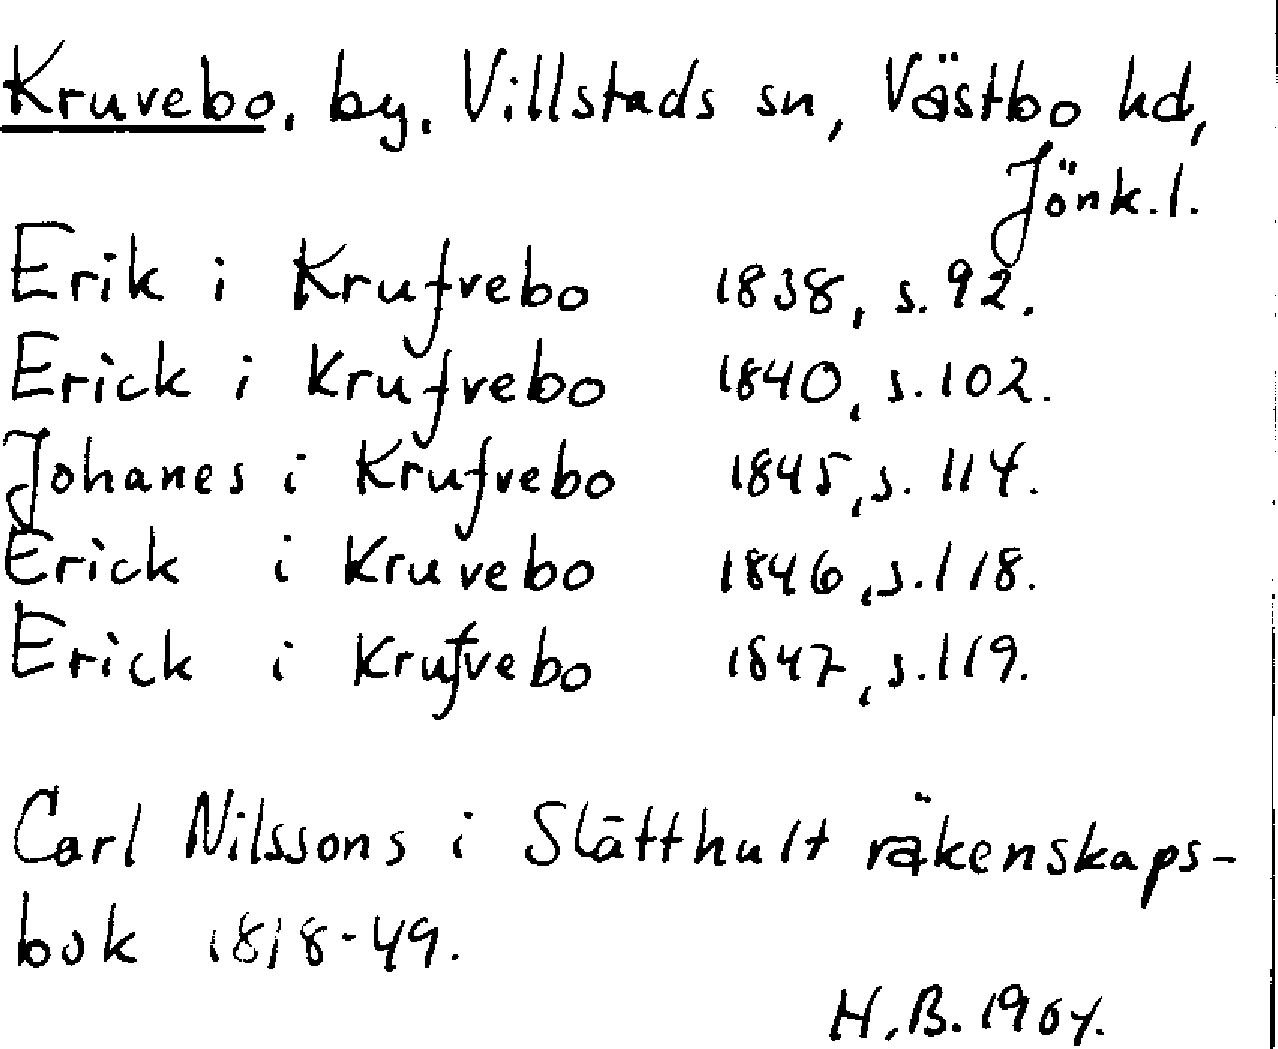 Kruvebo, by, Villstads sn, Västbo hd,
Jönk.l.
Erik i Krufvebo 1838, s.92.
Erick i Krufvebo 1840, s.102.
Johanes i Krufvebo 1845, s.114.
Erick i Kruvebo 1846, s.118.
Erick i Krufvebo 1847, s.119.
Carl Nilssons i Slätthult räkenskaps-
bok 1818-49.
H.B. 1964.